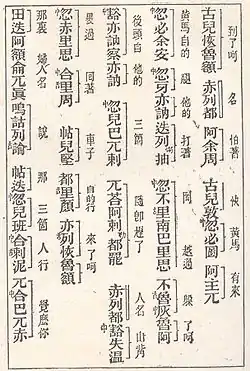 到了呵 名 伯著 彼 黃馬 有來
古兒恢魯額 赤列都 阿余周 古兒敦忽必圖 阿主兀
黃馬自的 腿 他的 打著 岡 越過 躱了呵
忽必余安 忽牙亦訥 迭列抽 忽不里南巴里思 不魯恢魯阿
後頭自 他的 三箇 隨即趕了 人名 山背
豁亦訥察亦訥 忽兒巴兀剌 兀荅阿剌都罷 赤列都豁失温
過 同著 車子 自的行 來了呵
忽赤里思 合里周 帖兒堅 都里顏 亦列恢魯額
那裏 婦人名 說 那 三箇 人行 覺麽你
田迭阿額侖兀眞嗚詁列論 帖迭忽兒班 合剌泥 兀合巴兀赤